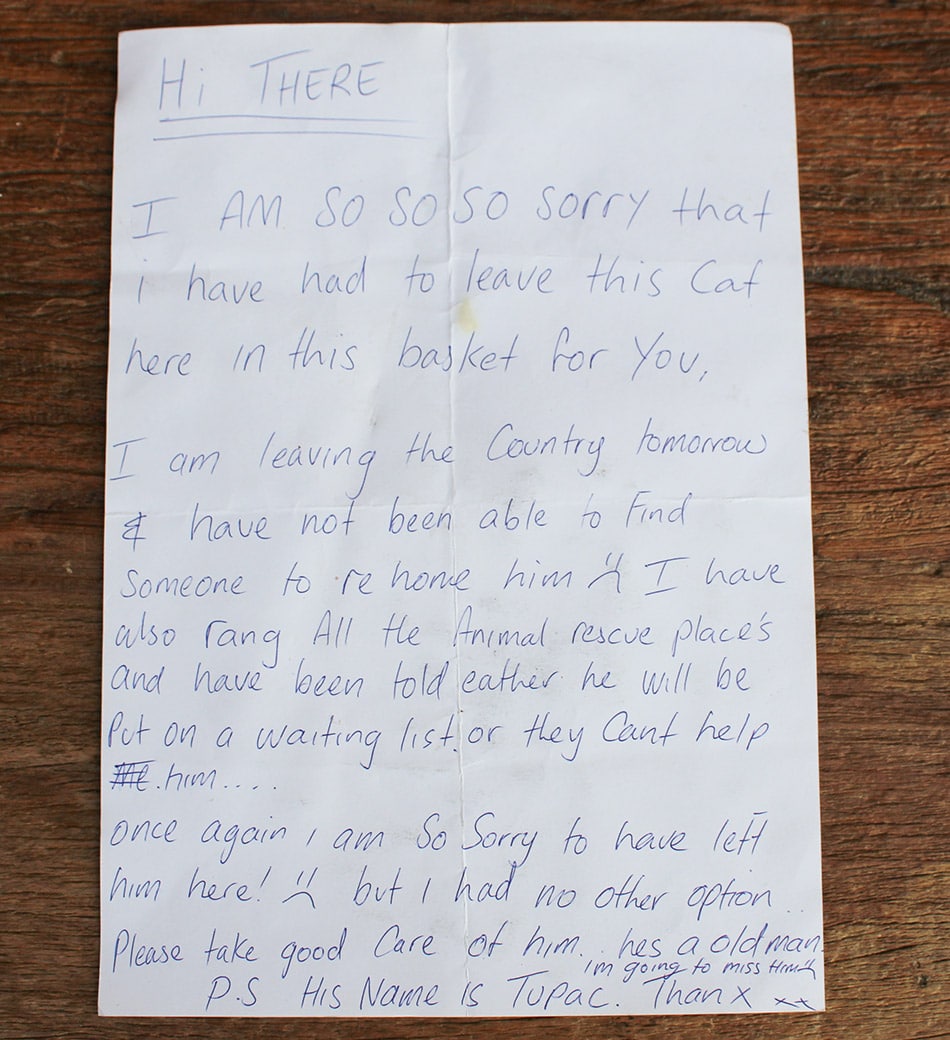 Hi THERE
I AM SO SO SO Sorry that
i have had to leave this Cat
here in this basket for You,
I am leaving the Country tomorrow
& have not been able to Find
Someone to re home him :( I have
also rang All the Animal rescue place's
and have been told eather he will be
Put on a waiting list. or they Cant help
Me. him....
once again i am So Sorry to have left
him here! :( but I had no other option..
Please take good Care of him.. hes a old man
im going to miss Him :(
P.S His Name is Tupac. Thanx xx